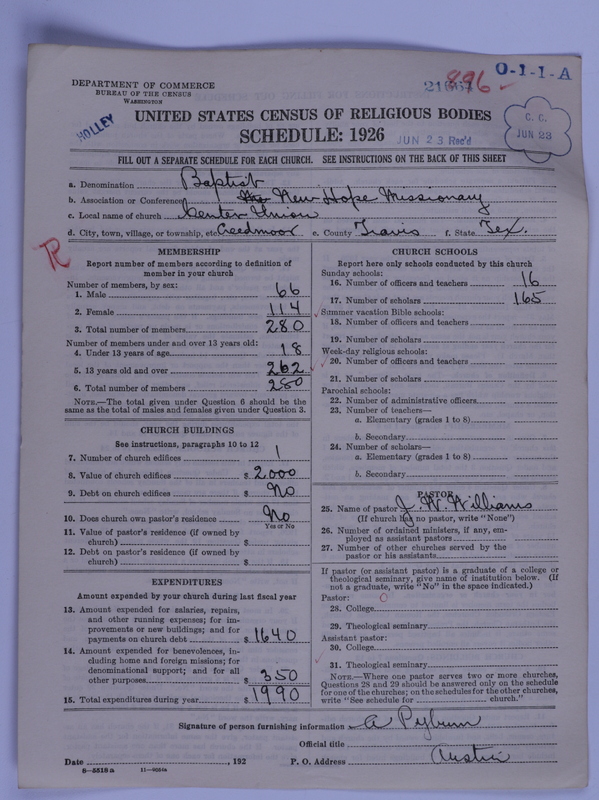 O-1-1-A
21567 896
DEPARTMENT OF COMMERCE
BUREAU OF THE CENSUS
WASHINGTON
HOLLEY
UNITED STATES CENSUS OF RELIGIOUS BODIES
SCHEDULE: 1926
JUN 23 Rec'd
C. C.
JUN 23
FILL OUT A SEPARATE SCHEDULE FOR EACH CHURCH. SEE INSTRUCTIONS ON THE BACK OF THIS SHEET
a. Denomination Baptist
b. Association or Conference New Hope Missionary
c. Local name of church Center Union
d. City, town, village, or township, etc. Creedmoor e. County Travis f. State Tex.
R
MEMBERSHIP
Report number of members according to definition of
member in your church
Number of members, by sex:
1. Male 66
2. Female 114
3. Total number of members 280
Number of members under and over 13 years old:
4. Under 13 years of age 18
5. 13 years old and over 262
6. Total number of members 280
NOTE.—The total given under Question 6 should be the
same as the total of males and females given under Question 3.
CHURCH BUILDINGS
See instructions, paragraphs 10 to 12
7. Number of church edifices 1
8. Value of church edifices $ 2000
9. Debt on church edifices $ No
10. Does church own pastor's residence No
Yes or No
11. Value of pastor's residence (if owned by
church) $
12. Debt on pastor's residence (if owned by
church) $
EXPENDITURES
Amount expended by your church during last fiscal year
13. Amount expended for salaries, repairs,
and other running expenses; for im-
provements or new buildings; and for
payments on church debt $ 1640
14. Amount expended for benevolences, in-
cluding home and foreign missions; for
denominational support; and for all
other purposes $ 350
15. Total expenditures during year $ 1990
CHURCH SCHOOLS
Report here only schools conducted by this church
Sunday schools:
16. Number of officers and teachers 16
17. Number of scholars 165
Summer vacation Bible schools:
18. Number of officers and teachers
19. Number of scholars
Week-day religious schools:
20. Number of officers and teachers
21. Number of scholars
Parochial schools:
22. Number of administrative officers
23. Number of teachers—
a. Elementary (grades 1 to 8)
b. Secondary
24. Number of scholars—
a. Elementary (grades 1 to 8)
b. Secondary
PASTOR
25. Name of pastor J. W. Williams
(If church has no pastor, write "None")
26. Number of ordained ministers, if any, em-
ployed as assistant pastors
27. Number of other churches served by the
pastor or his assistants
If pastor (or assistant pastor) is a graduate of a college or
theological seminary, give name of institution below. (If
not a graduate, write "No" in the space indicated.)
Pastor:
28. College
29. Theological seminary
Assistant pastor:
30. College
31. Theological seminary
NOTE.—Where one pastor serves two or more churches,
Questions 28 and 29 should be answered only on the schedule
for one of the churches; on the schedules for the other churches,
write "See schedule for church."
Signature of person furnishing information A Pyburn
Official title
Date , 192 P. O. Address Austin
8-5518a 11-9054a